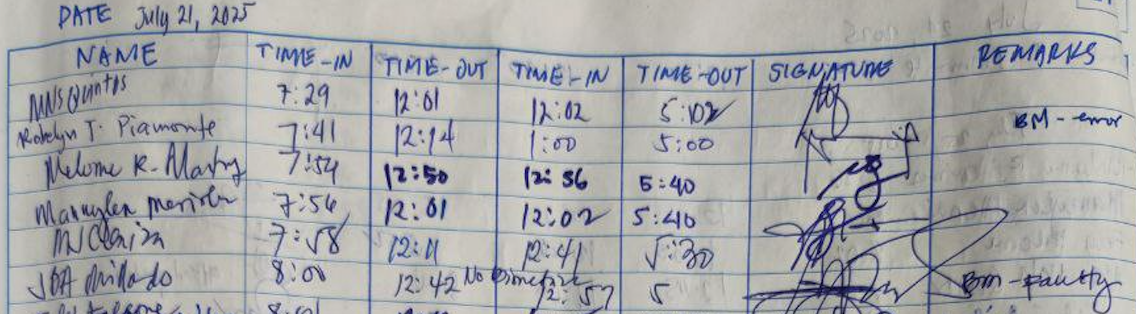 DATE July 21, 2025
NAME TIME-IN TIME-OUT TIME-IN TIME-OUT SIGNATURE REMARKS
MNS Quintos 7:29 12:01 12:02 5:02
Robelyn T. Piamonte 7:41 12:14 1:00 5:00 BM-error
R. 7:54 12:50 12:56 5:40
7:56 12:01 12:02 5:40
7:58 12:11 12:41 5:30
8:00 12:42 No Biometric 12:57 5 BM-Faulty